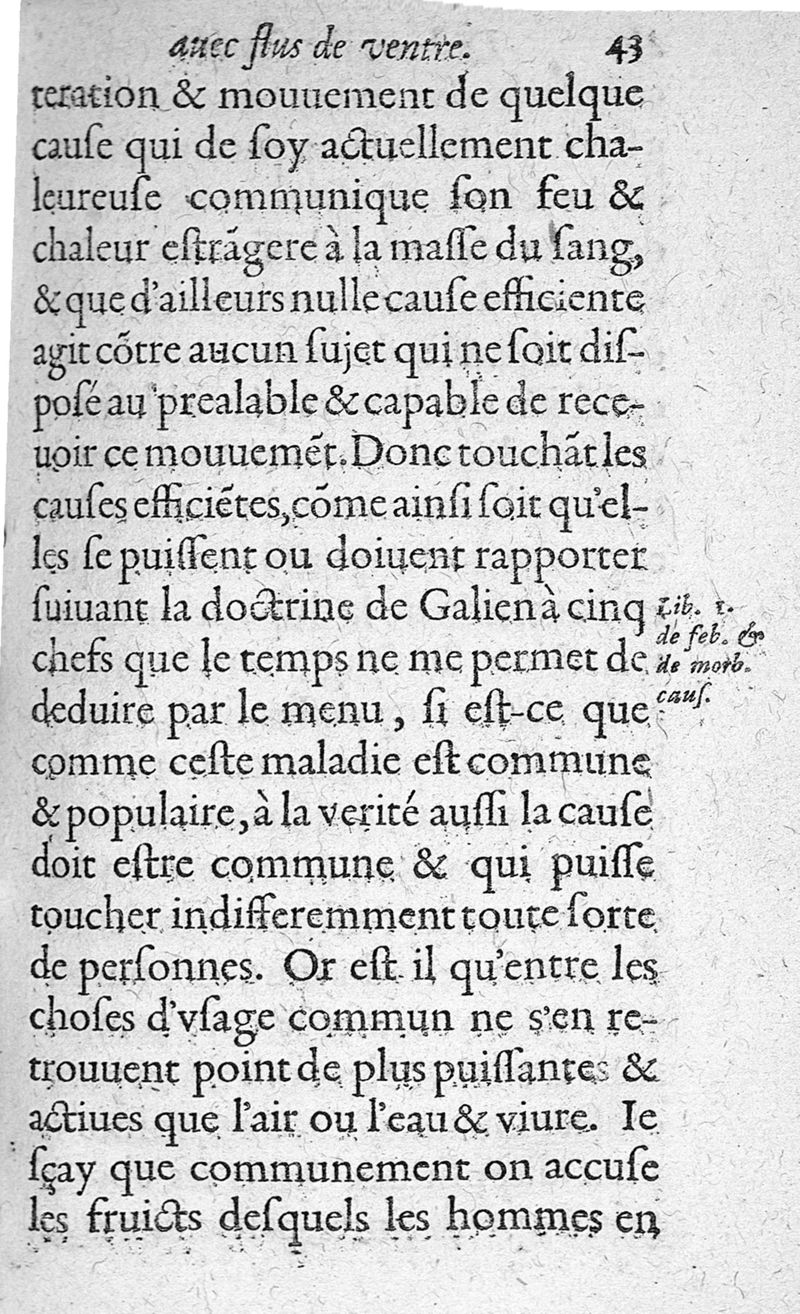 auec flus de ventre. 43
teration & mouuement de quelque
cauſe qui de ſoy actuellement cha-
leureuſe communique ſon feu &
chaleur eſtrãgere à la maſſe du ſang,
& que d'ailleurs nulle cauſe efficiente
agit cõtre aucun ſujet qui ne ſoit diſ-
poſé au prealable & capable de rece-
uoir ce mouuemẽt. Donc touchãt les
cauſes efficiẽtes, cõme ainſi ſoit qu'el-
les ſe puiſſent ou doiuent rapporter
ſuiuant la doctrine de Galien à cinq
chefs que le temps ne me permet de
deduire par le menu, ſi eſt-ce que
comme ceſte maladie eſt commune
& populaire, à la verité auſſi la cauſe
doit eſtre commune & qui puiſſe
toucher indifferemment toute ſorte
de perſonnes. Or eſt il qu'entre les
choſes d'vſage commun ne s'en re-
trouuent point de plus puiſſantes &
actiues que l'air ou l'eau & viure. Ie
ſçay que communement on accuſe
les fruicts deſquels les hommes en
Lib. 1.
de feb. &
de morb.
cauſ.